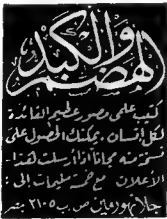 الهضم والكبد
كتيب علمي مصور عظيم الفائدة
لكل انسان. يمكنك الحصول على
نسخة منه مجاناً اذا ارسلت هذا
الأعلان مع خمسة مليمات إلى
ص.ب ٢١٠٥ مصر